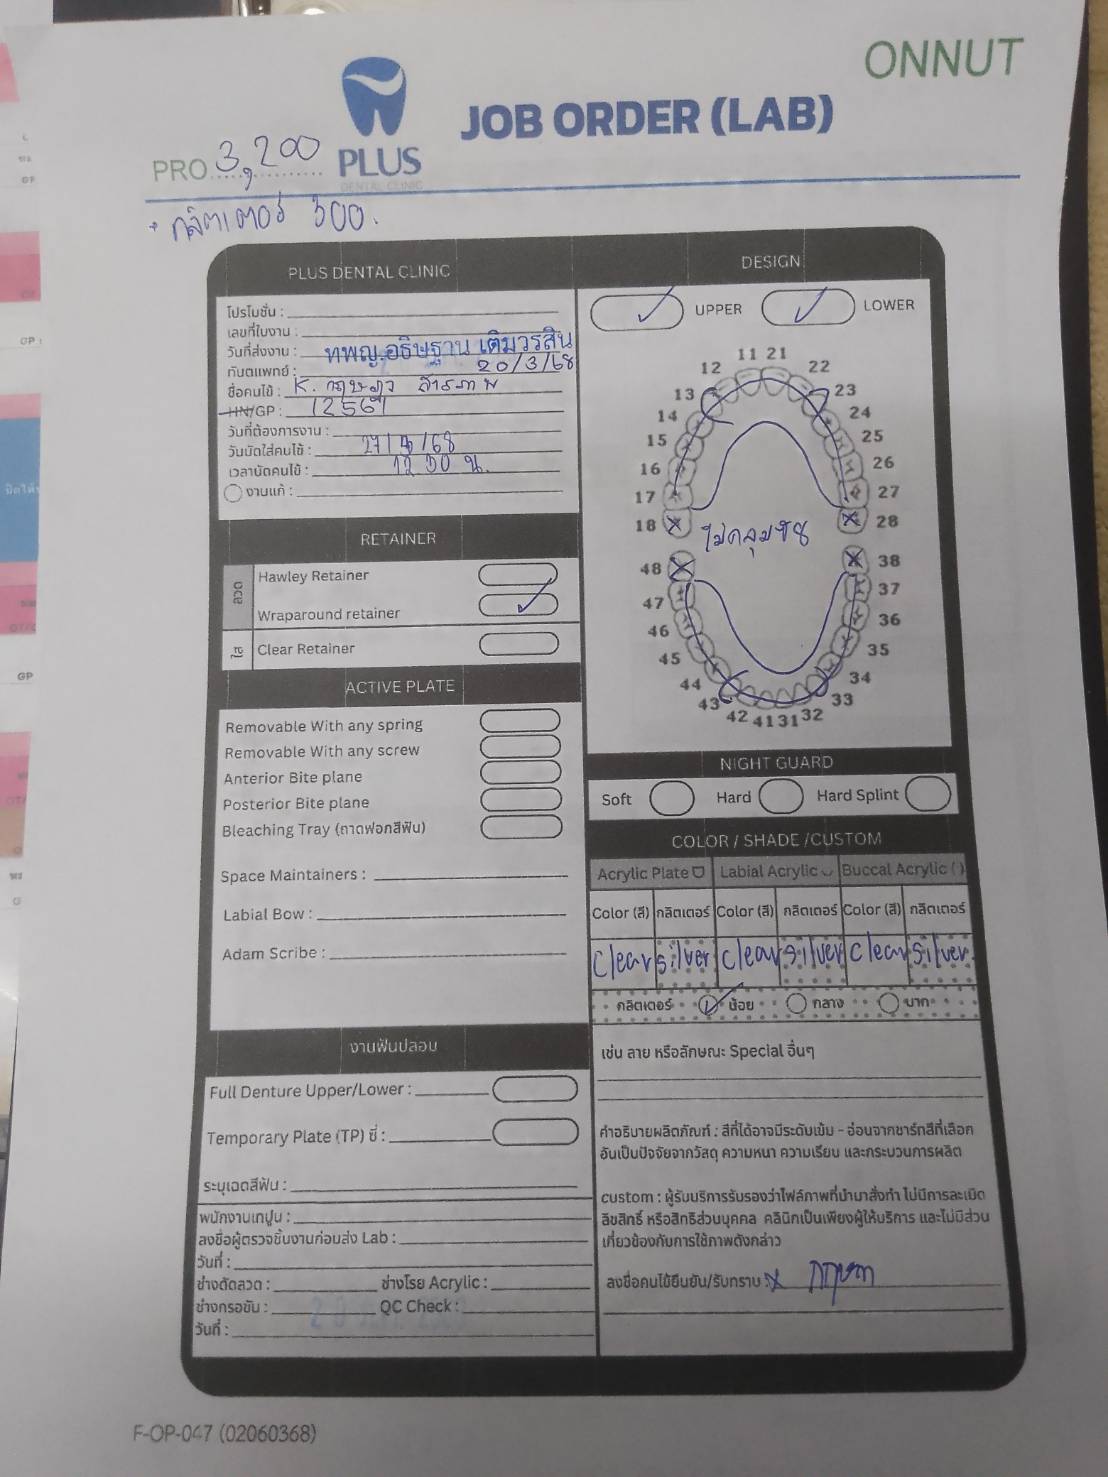 ONNUT
JOB ORDER (LAB)
PRO 3,200
PLUS
DENTAL CLINIC
+ กลิตเตอร์ 300.
PLUS DENTAL CLINIC
โปรโมชั่น :
เลขที่ใบงาน :
วันที่ส่งงาน : 20/3/68
ทันตแพทย์ : ทพญ.อธิษฐาน เติมวรสิน
ชื่อคนไข้ : K.
HN/GP : 12561
วันที่ต้องการงาน :
วันนัดใส่คนไข้ : 27/4/68
เวลานัดคนไข้ : 12.30 น.
งานแก้ :
RETAINER
ลวด
Hawley Retainer
Wraparound retainer
ใส
Clear Retainer
ACTIVE PLATE
Removable With any spring
Removable With any screw
Anterior Bite plane
Posterior Bite plane
Bleaching Tray (ถาดฟอกสีฟัน)
Space Maintainers :
Labial Bow :
Adam Scribe :
งานฟันปลอม
Full Denture Upper/Lower :
Temporary Plate (TP) ซี่ :
ระบุเฉดสีฟัน :
พนักงานเทปูน :
ลงชื่อผู้ตรวจชิ้นงานก่อนส่ง Lab :
วันที่ :
ช่างดัดลวด : ช่างโรย Acrylic :
ช่างกรอขัน : QC Check :
วันที่ :
DESIGN
UPPER LOWER
11 21
12 22
13 23
14 24
15 25
16 26
17 27
18 28
ไม่คลุมซี่ 8
48 38
47 37
46 36
45 35
44 34
43 33
42 41 31 32
NIGHT GUARD
Soft Hard Hard Splint
COLOR / SHADE /CUSTOM
Acrylic Plate Labial Acrylic Buccal Acrylic ( )
Color (สี) กลิตเตอร์ Color (สี) กลิตเตอร์ Color (สี) กลิตเตอร์
Clear silver clear silver clear silver
กลิตเตอร์ น้อย กลาง มาก
เช่น ลาย หรือลักษณะ Special อื่นๆ
คำอธิบายผลิตภัณฑ์ : สีที่ได้อาจมีระดับเข้ม - อ่อนจากชาร์ทสีที่เลือก
อันเป็นปัจจัยจากวัสดุ ความหนา ความเรียบ และกระบวนการผลิต
custom : ผู้รับบริการรับรองว่าไฟล์ภาพที่นำมาสั่งทำ ไม่มีการละเมิด
ลิขสิทธิ์ หรือสิทธิส่วนบุคคล คลินิกเป็นเพียงผู้ให้บริการ และไม่มีส่วน
เกี่ยวข้องกับการใช้ภาพดังกล่าว
ลงชื่อคนไข้ยืนยัน/รับทราบ : x
F-OP-047 (02060368)